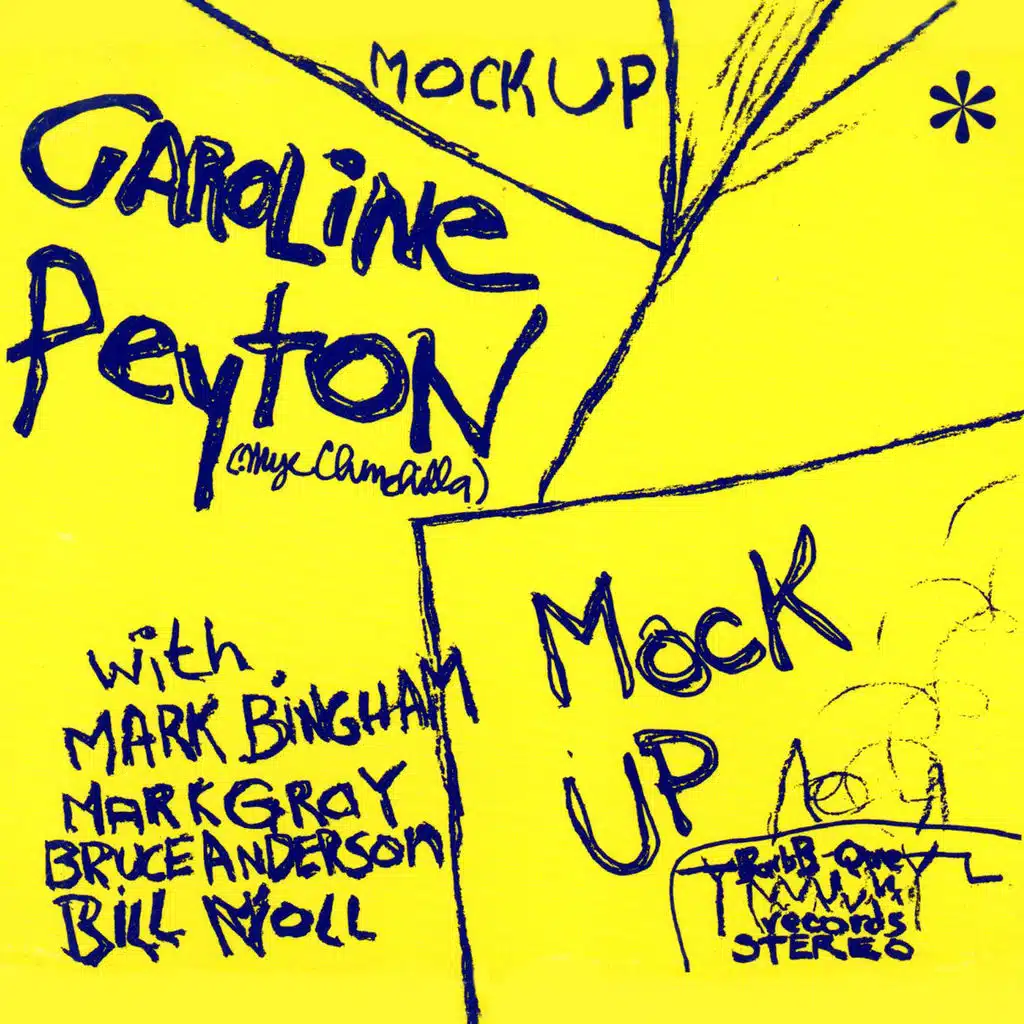 MOCK UP
*
CAROLINE
PEyTON
with
MARK BiNGHAM
MARK GRAY
BRUCE ANDERSON
BILL NOLL
MOCK
UP
BarbB-Que
records
STEREO